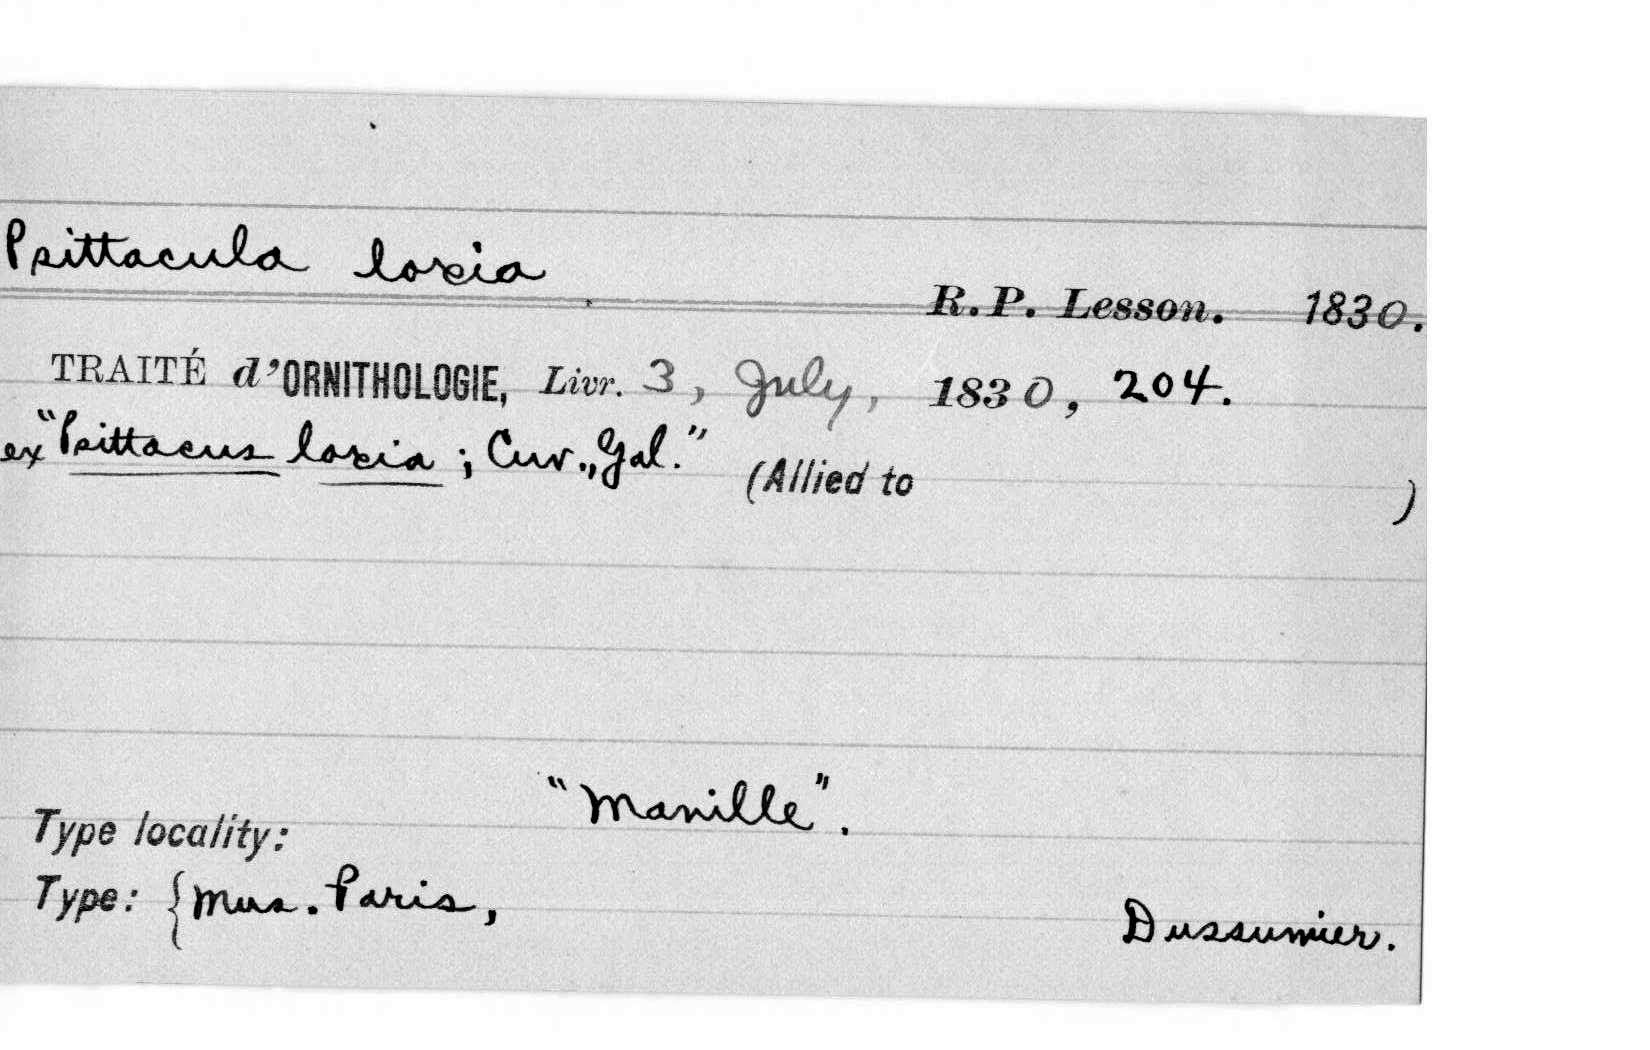 Psittacula loxia
R. P. Lesson. 1830.
TRAITÉ d'ORNITHOLOGIE, Livr. 3, July, 1830, 204.
ex "Psittacus loxia; Cuv., Gal." (Allied to )
"Manille".
Type locality:
Type: {Mus. Paris, Dussumier.